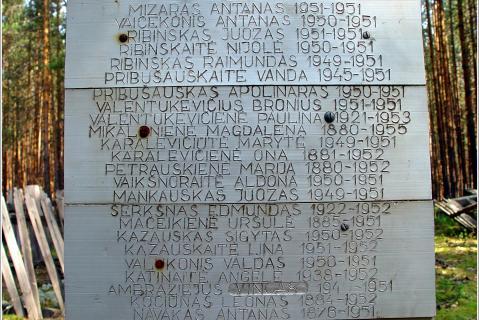 MIZARAS ANTANAS 1951-1951
VAIČEKONIS ANTANAS 1950-1952
RIBINSKAS JUOZAS 1951-1951
RIBINSKAITĖ NIJOLĖ 1950-1951
RIBINSKAS RAIMUNDAS 1949-1951
PRIBUŠAUSKAITĖ VANDA 1945-1951
PRIBUŠAUSKAS APOLINARAS 1950-1951
VALENTUKEVIČIUS BRONIUS 1951-1951
VALENTUKEVIČIENĖ PAULINA 1921-1953
MAGDALENA 1880-1955
KARALEVIČIŪTĖ MARYTĖ 1949-1951
KARALEVIČIENĖ ONA 1881-1952
PETRAUSKIENĖ MARIJA 1880-1952
VAIKŠNORAITĖ ALDONA 1950-1951
MANKAUSKAS JUOZAS 1949-1951
ŠERKŠNAS EDMUNDAS 1922-1952
MACEIKIENĖ URŠULĖ 1885-1951
KAZAUSKAS SIGYTAS 1950-1952
KAZAUSKAITĖ LINA 1951-1952
VALDAS 1950-1951
KATINAITĖ ANGELĖ 1938-1952
AMBRAZIEJUS
KOCIŪNAS LEONAS 1884-1952
NAVAKAS ANTANAS 1950-1951